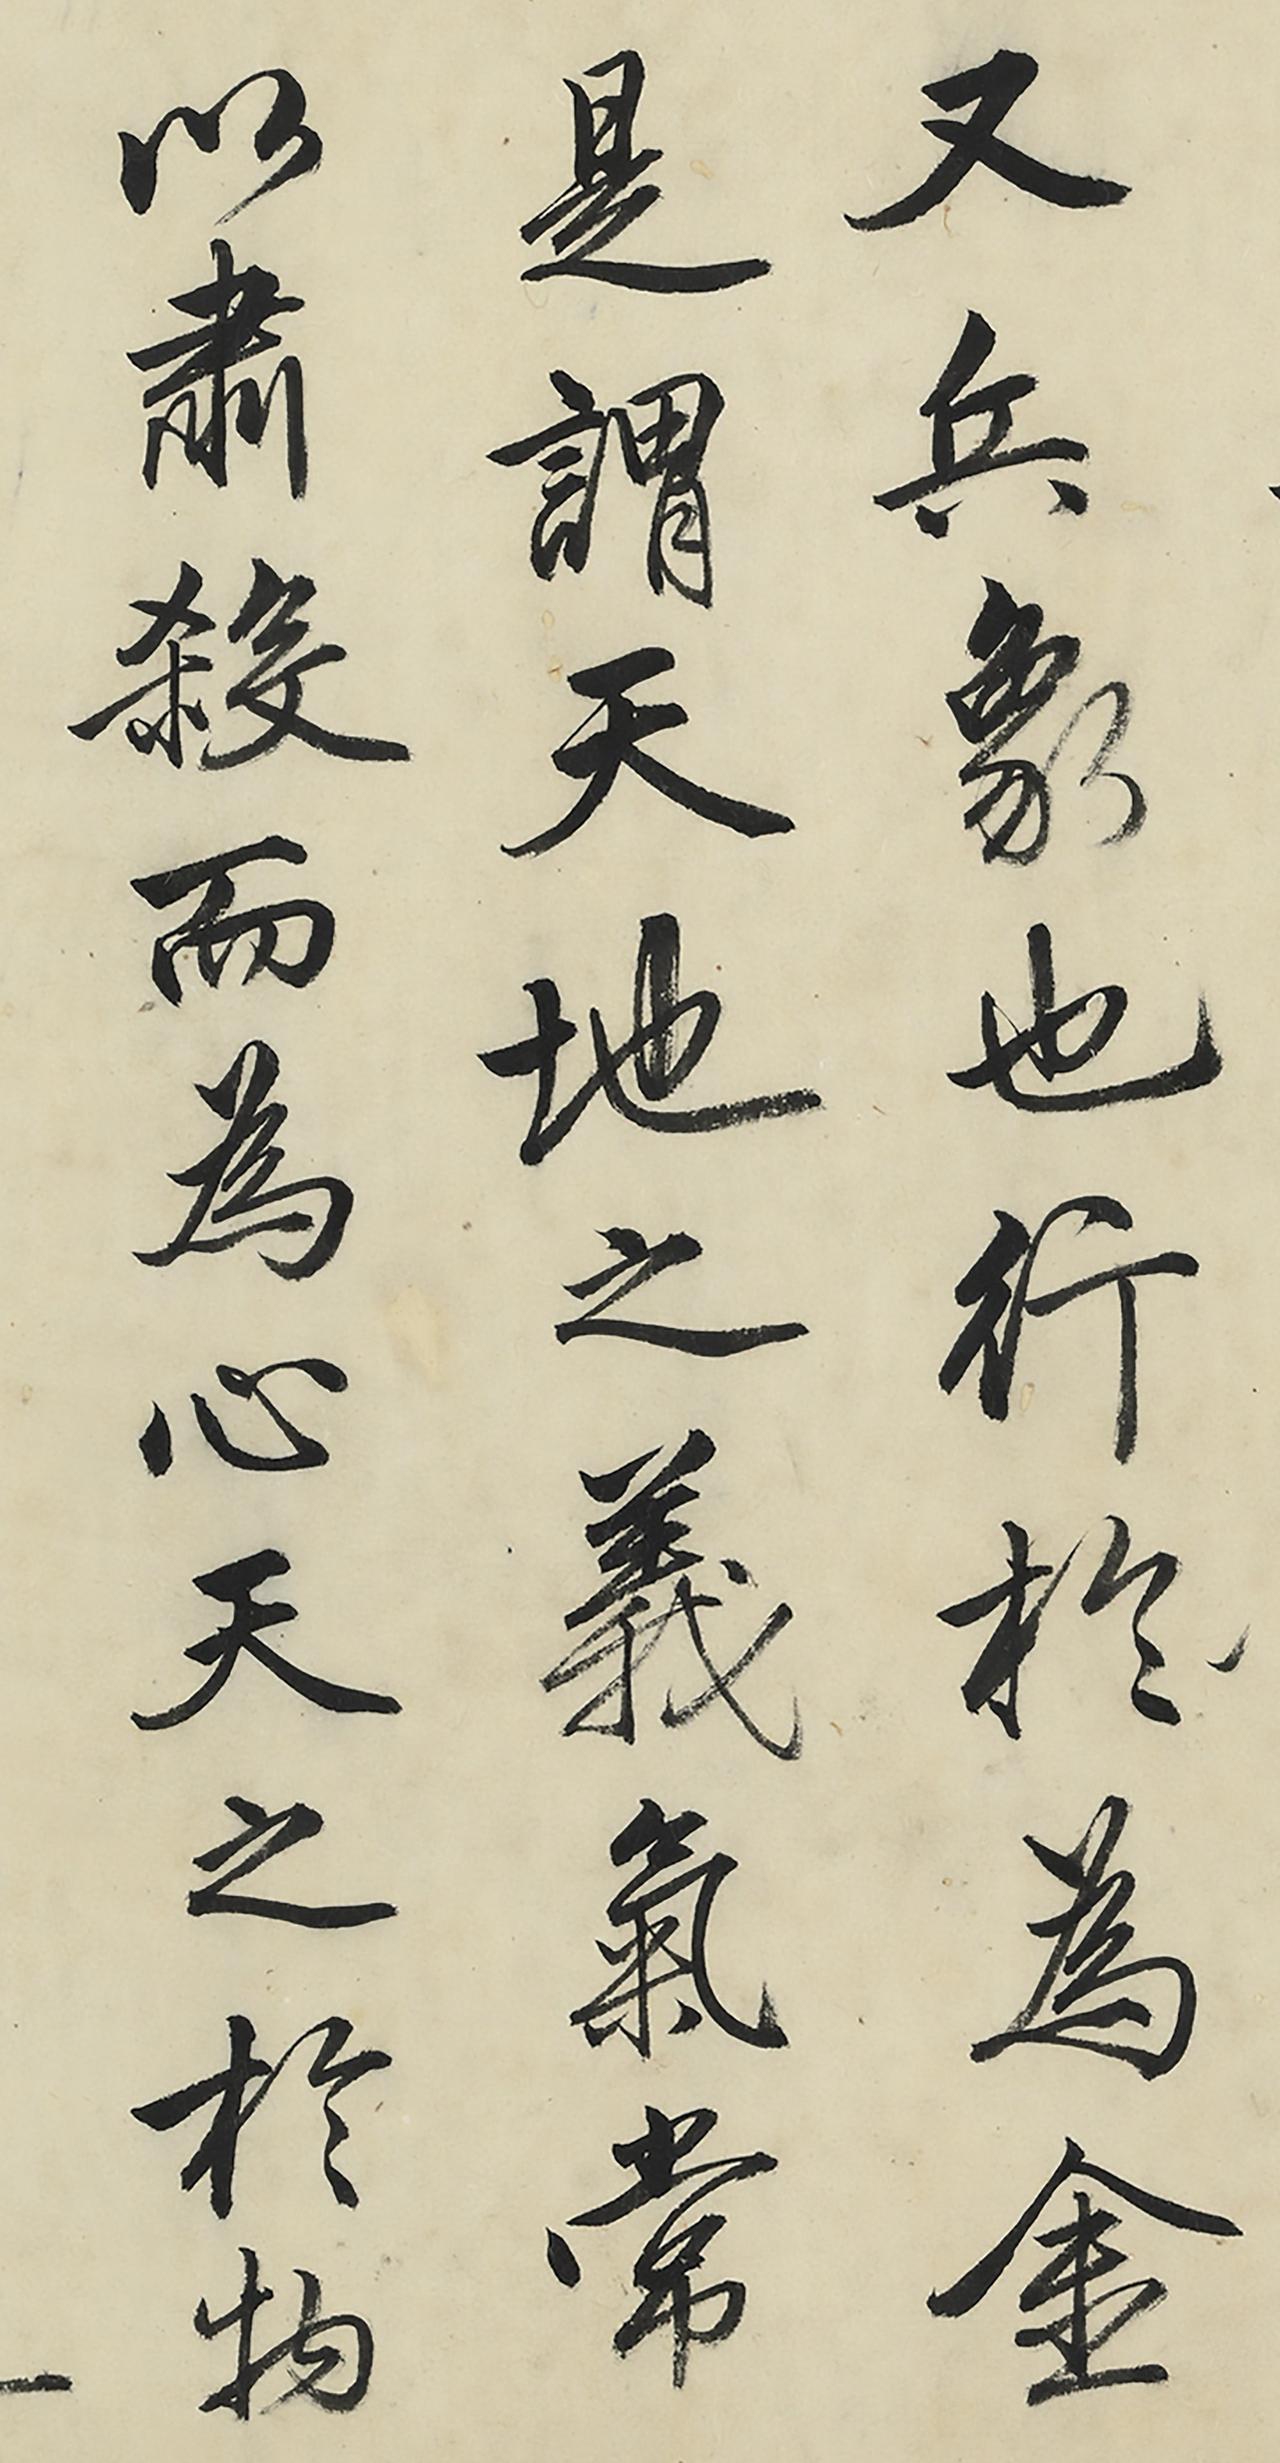 又兵象也行於為金
是謂天地之義氣常
以肅殺而為心天之於物